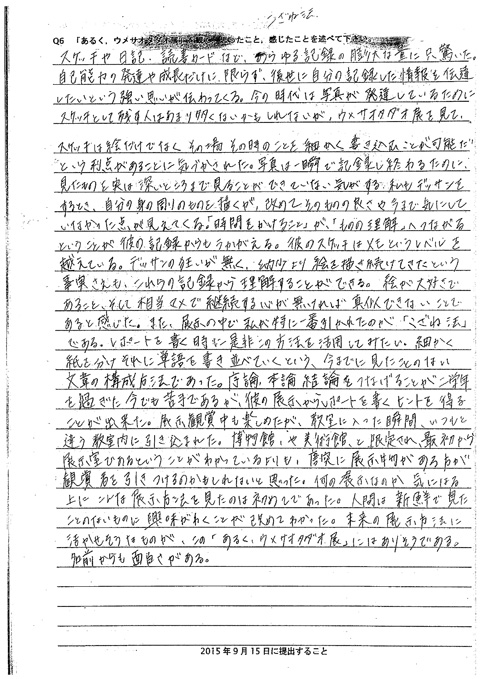 こざね法
Q6 「あるく、ウメサオタダオ展」 ったこと、感じたことを述べて下さい。
スケッチや日記、読書カードなど、あらゆる記録の膨大な量に只驚いた。
自己能力の発達や成長だけに限らず、後世に自分の記録した情報を伝達
したいという強い思いが伝わってくる。今の時代は写真が発達しているために
スケッチとして残す人はあまり多くないかもしれないが、ウメサオタダオ展を見て、
スケッチは絵だけでなく、その場その時のことを細かく書き込むことが可能だ
という利点があることに気づかされた。写真は一瞬で記録し終わるために、
見たものを実は深いところまで見ることができていない気がする。私もデッサンを
するとき、自分の身の周りのものを描くが、改めてそのものの良さや今まで気にして
いなかった点が見えてくる。「時間をかけること」が、「ものの理解」へつながる
ということが彼の記録からもうかがえる。彼のスケッチはメモというレベルを
越えている。デッサンの狂いが無く、幼少より絵を描き続けてきたという
事実さえも、これらの記録から理解することができる。絵が大好きで
あること、そして相当マメで継続する心が無ければ真似できないことで
あると感じた。また、展示の中で私が特に一番引かれたのが「こざね法」
である。レポートを書く時に是非この方法を活用してみたい。細かく
紙を分けそれに単語を書き並べていくという、今までに見たことのない
文章の構成方法であった。序論、本論、結論をつなげることが二学年
を過ぎた今でも苦手であるが、彼の展示からレポートを書くヒントを得る
ことが出来た。展示観賞中も楽しめたが、教室に入った瞬間、いつもと
違う教室内に引き込まれた。博物館、や美術館、と限定され、最初から
展示室であるということがわかっているよりも、唐突に展示物がある方が
観賞者を引きつけるのかもしれないと思った。何の展示なのか気になる
上にこんな展示方法を見たのは初めてであった。人間は新鮮で見た
ことのないものに興味がわくことが改めてわかった。未来の展示方法に
活かせそうなものが、この「あるく、ウメサオタダオ展」にはありそうである。
名前からも面白さがある。
2015年9月15日に提出すること